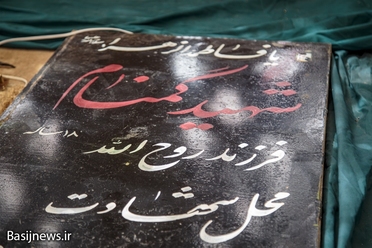 یا فاطمة الزهرا
شهید گمنام
فرزند روح الله
۱۸ ساله
محل شهادت
Basijnews.ir